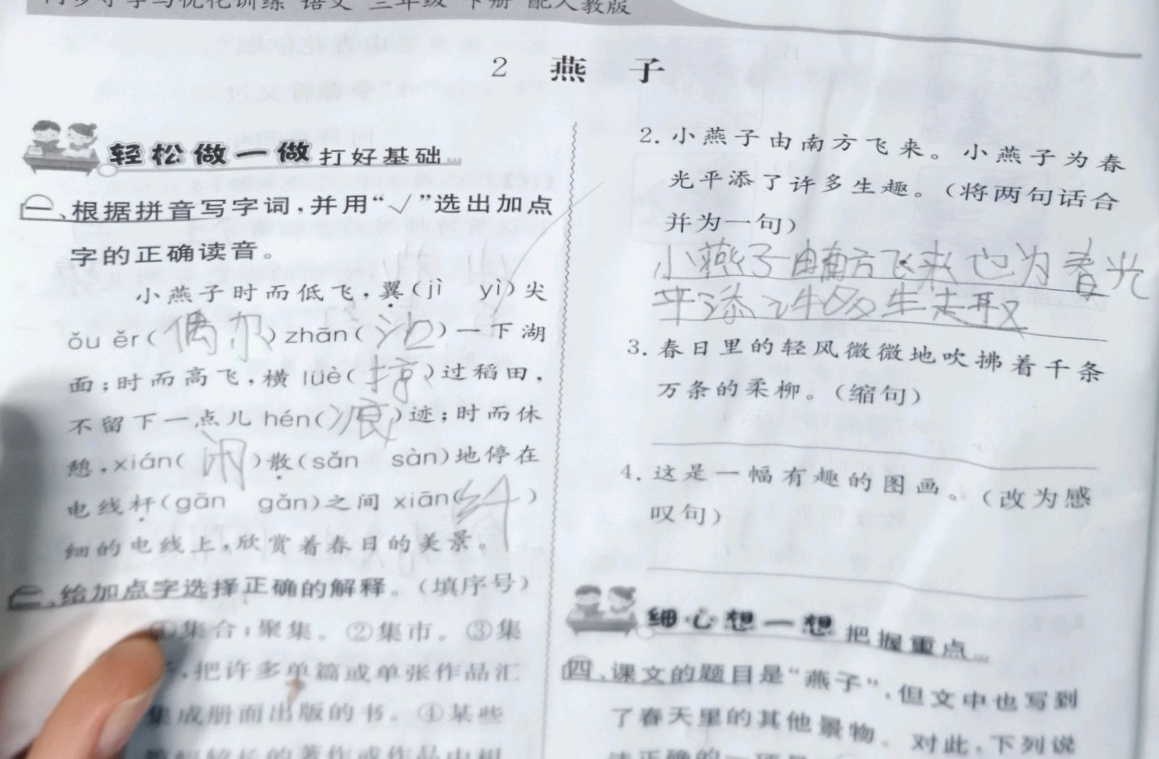 同步导学与优化训练 语文 三年级 下册 配人教版
2 燕子
轻松做一做 打好基础
一、根据拼音写字词，并用“√”选出加点
字的正确读音。
小燕子时而低飞，翼(jì yì)尖
ǒu ěr(偶尔)zhān(沾)一下湖
面；时而高飞，横lüè(掠)过稻田，
不留下一点儿hén(痕)迹；时而休
憩，xián(闲)散(sǎn sàn)地停在
电线杆(gān gǎn)之间xiān(纤)
细的电线上，欣赏着春日的美景。
二、给加点字选择正确的解释。(填序号)
①集合；聚集。②集市。③集
，把许多单篇或单张作品汇
集成册而出版的书。④某些
篇幅较长的著作或作品中相
2. 小燕子由南方飞来。小燕子为春
光平添了许多生趣。(将两句话合
并为一句)
小燕子由南方飞来也为春光
平添许多生趣
3. 春日里的轻风微微地吹拂着千条
万条的柔柳。(缩句)
4. 这是一幅有趣的图画。(改为感
叹句)
细心想一想 把握重点
四、课文的题目是“燕子”，但文中也写到
了春天里的其他景物。对此，下列说
法正确的一项是